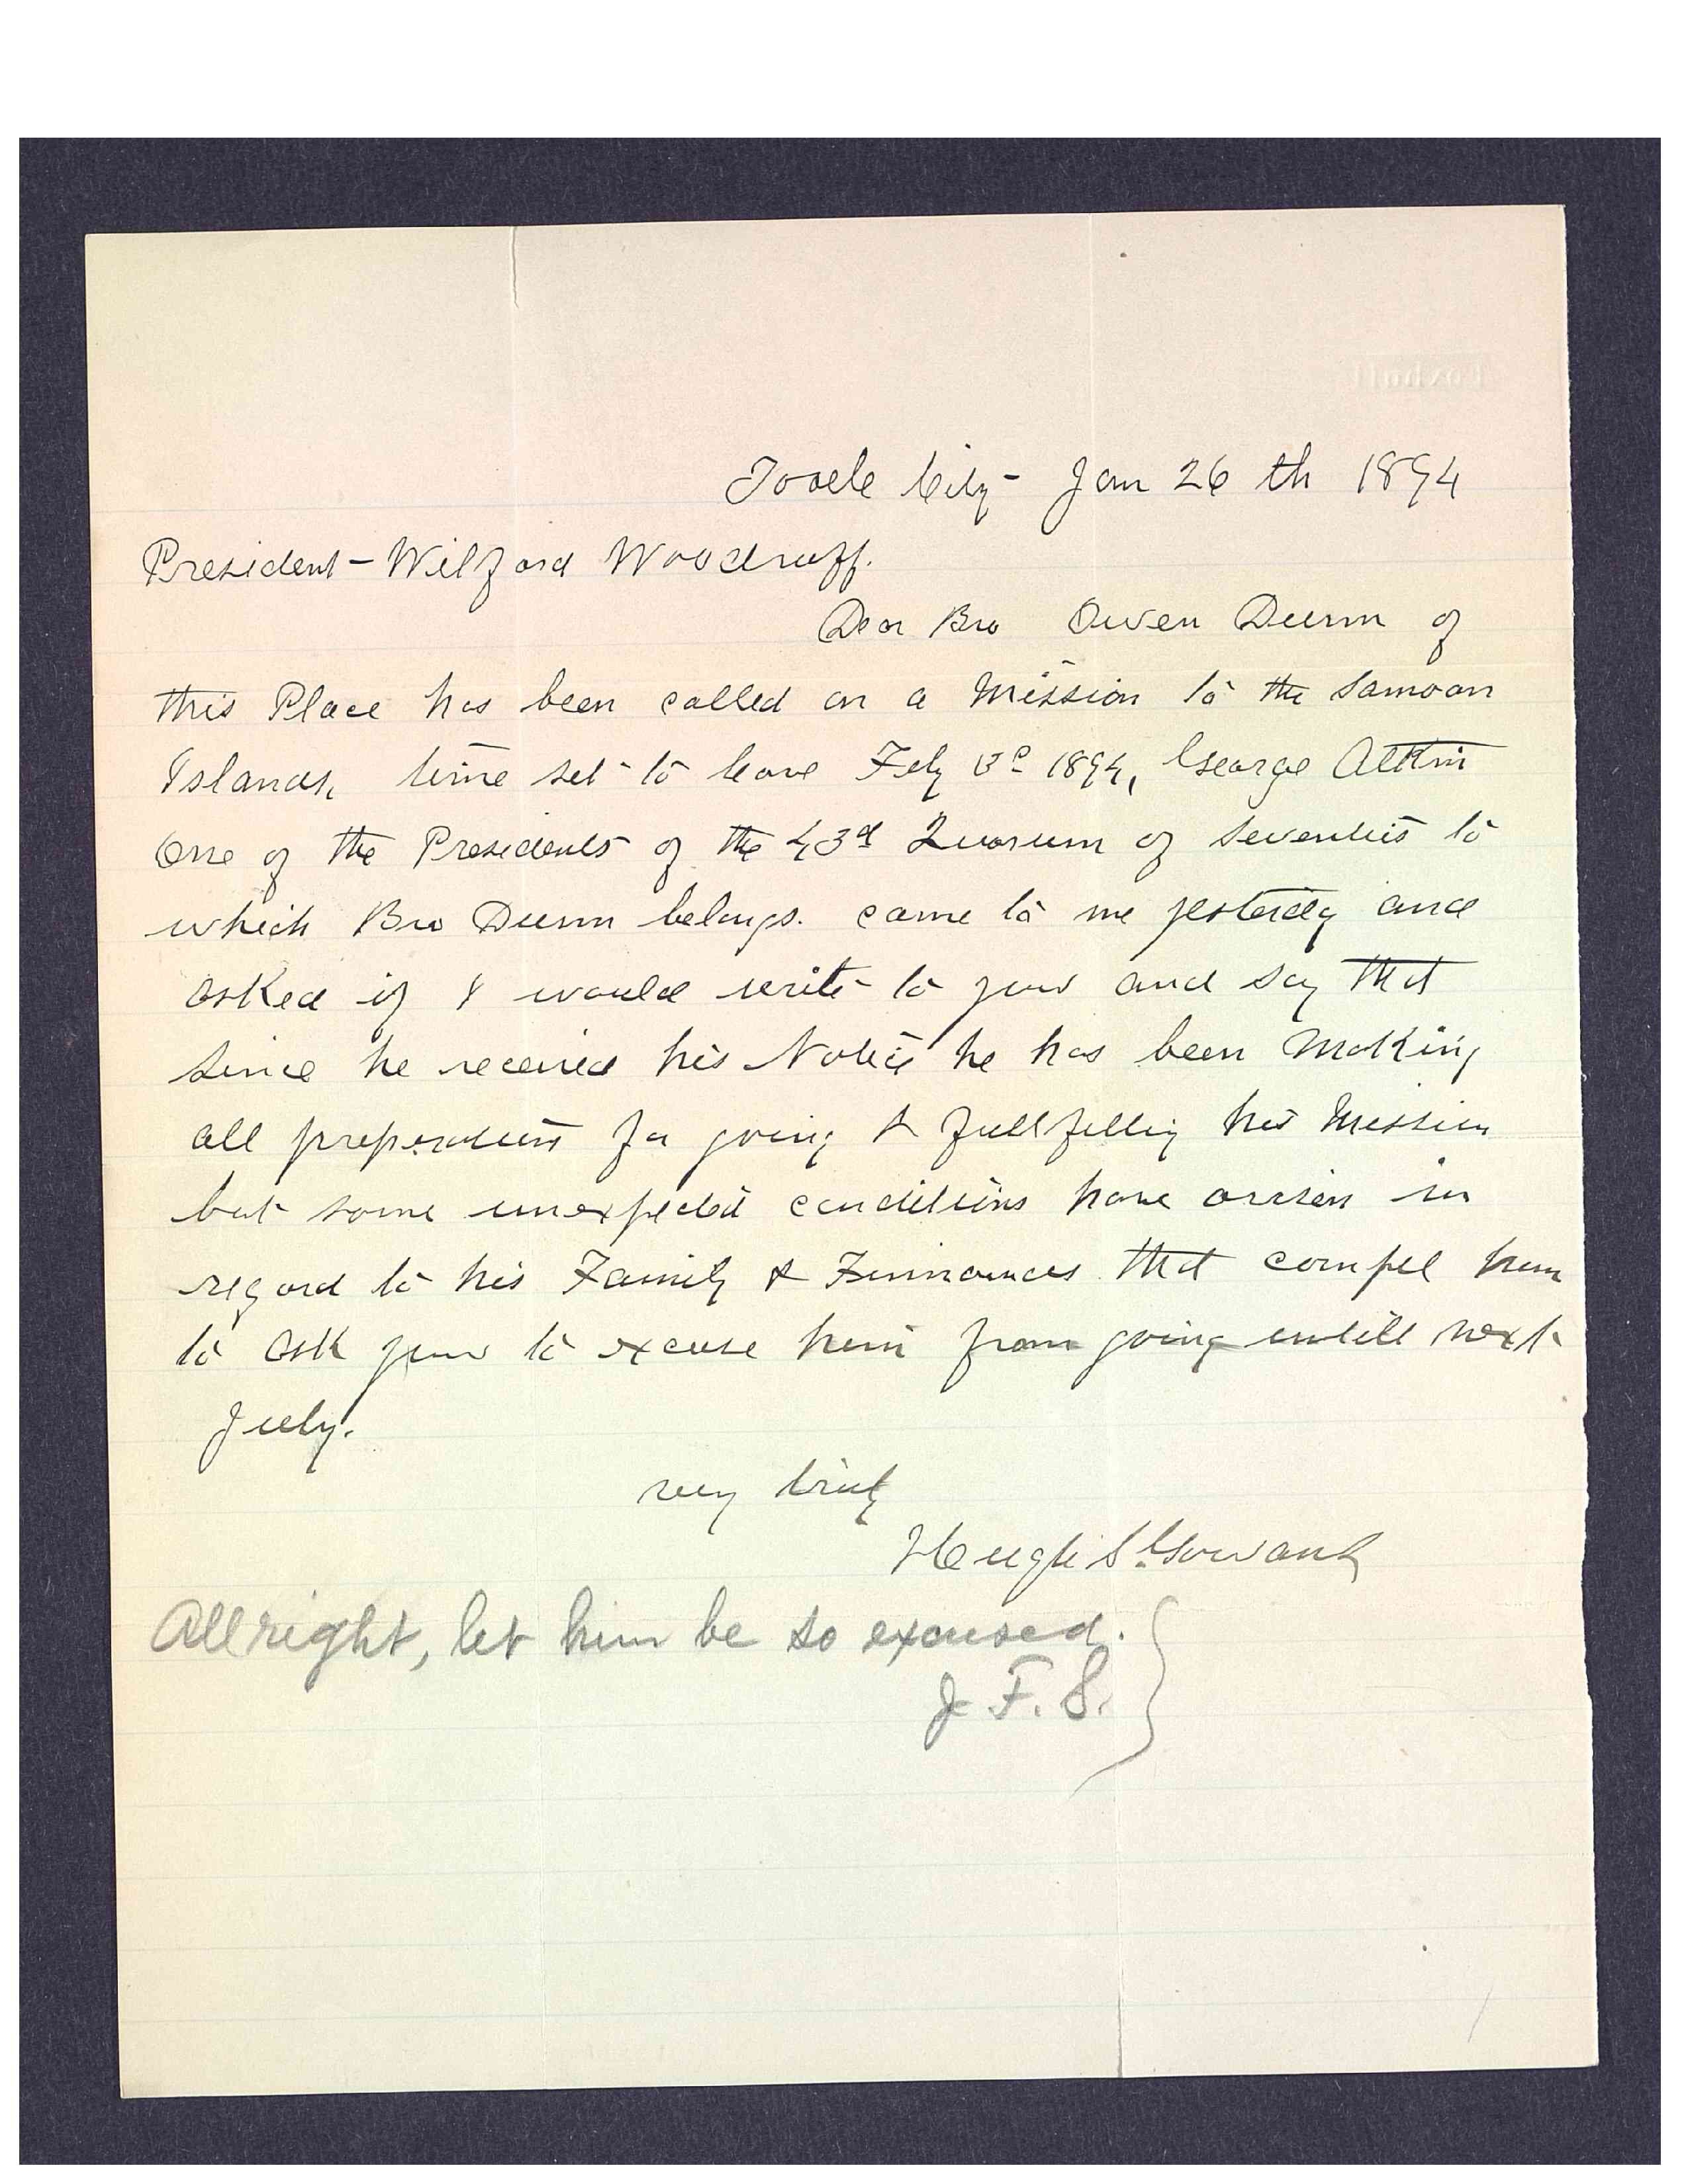 Tooele City - Jan 26 th 1894
President - Wilford Woodruff.
Dear Bro Owen Dunn of
this Place has been called on a Mission to the Samoan
Islands, time set to leave Feby 1894, George Atkin
One of the Presidents of the 43d Quorum of Seventies to
which Bro Dunn belongs. came to me yesterdy and
asked if I would write to you and say that
since he received his Notice he has been Making
all preperations for going & fullfilling his Mission
but some unexpected conditions have arisen in
regard to his Family & Finnances that compel him
to ask you to excuse him from going untill next
July.
very truly
Hugh S. Gowans
All right, let him be so excused.
J. F. S.